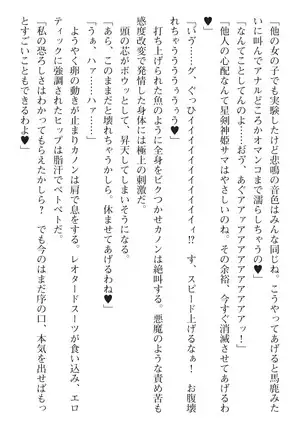 「他の女の子でも実験したけど悲鳴の音色はみんな同じね。こうやってあげると馬鹿みた
いに叫んでアナルどころかオマンコまで濡らしちゃうの♥」
「なんてことしてんのよ……おぅ、あぐアァァアアアアアアアアーッ！」
「他人の心配なんて星剣神姫サマはやさしいのね。その余裕、今すぐ消滅させてあげるわ
♥」
「いぅ――グ、ぐっひイイイイイイイイイイィ⁉　す、スピード上げるなぁ！　お腹壊
れちゃうううぅぅうぅ♥」
　打ち上げられた魚のように全身をビクつかせカノンは絶叫する。悪魔のような責め苦も
感度改変で発情した身体には極上の刺激だ。
　頭の芯がボウッとして、昇天してしまいそうになる。
「くあぁっ、このままだと壊れちゃうかしら。休ませてあげるわね♥」
「うぁ、ハァ……ハァ……」
　ようやく卵の動きが止まりカノンは肩で息をする。レオタードスーツが食い込み、エロ
ティックに強調されたヒップは脂汗でベトベトだ。
「私の恐ろしさはわかってもらえたかしら？　でも今のはまだ序の口、本気を出せばもっ
とすごいことになるわよ♥」